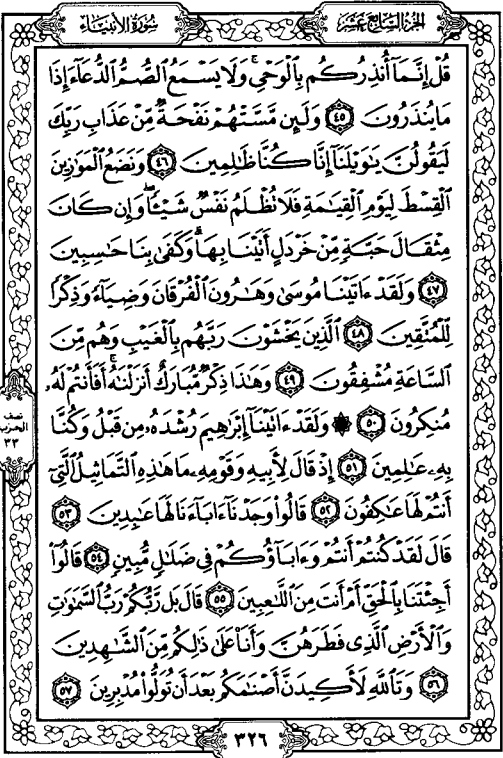 سُورَةُ الأَنبِيَاءِ
الجُزْءُ السَّابِعَ عَشَرَ
قُلْ إِنَّمَآ أُنذِرُكُم بِٱلْوَحْيِ ۚ وَلَا يَسْمَعُ ٱلصُّمُّ ٱلدُّعَآءَ إِذَا
مَا يُنذَرُونَ ٤٥ وَلَئِن مَّسَّتْهُمْ نَفْحَةٌ مِّنْ عَذَابِ رَبِّكَ
لَيَقُولُنَّ يَٰوَيْلَنَآ إِنَّا كُنَّا ظَٰلِمِينَ ٤٦ وَنَضَعُ ٱلْمَوَٰزِينَ
ٱلْقِسْطَ لِيَوْمِ ٱلْقِيَٰمَةِ فَلَا تُظْلَمُ نَفْسٌ شَيْـًٔا ۖ وَإِن كَانَ
مِثْقَالَ حَبَّةٍ مِّنْ خَرْدَلٍ أَتَيْنَا بِهَا ۗ وَكَفَىٰ بِنَا حَٰسِبِينَ
٤٧ وَلَقَدْ ءَاتَيْنَا مُوسَىٰ وَهَٰرُونَ ٱلْفُرْقَانَ وَضِيَآءً وَذِكْرًا
لِّلْمُتَّقِينَ ٤٨ ٱلَّذِينَ يَخْشَوْنَ رَبَّهُم بِٱلْغَيْبِ وَهُم مِّنَ
ٱلسَّاعَةِ مُشْفِقُونَ ٤٩ وَهَٰذَا ذِكْرٌ مُّبَارَكٌ أَنزَلْنَٰهُ ۚ أَفَأَنتُمْ لَهُۥ
مُنكِرُونَ ٥٠ ۞ وَلَقَدْ ءَاتَيْنَآ إِبْرَٰهِيمَ رُشْدَهُۥ مِن قَبْلُ وَكُنَّا
بِهِۦ عَٰلِمِينَ ٥١ إِذْ قَالَ لِأَبِيهِ وَقَوْمِهِۦ مَا هَٰذِهِ ٱلتَّمَاثِيلُ ٱلَّتِىٓ
أَنتُمْ لَهَا عَٰكِفُونَ ٥٢ قَالُوا۟ وَجَدْنَآ ءَابَآءَنَا لَهَا عَٰبِدِينَ ٥٣
قَالَ لَقَدْ كُنتُمْ أَنتُمْ وَءَابَآؤُكُمْ فِى ضَلَٰلٍ مُّبِينٍ ٥٤ قَالُوٓا۟
أَجِئْتَنَا بِٱلْحَقِّ أَمْ أَنتَ مِنَ ٱللَّٰعِبِينَ ٥٥ قَالَ بَل رَّبُّكُمْ رَبُّ ٱلسَّمَٰوَٰتِ
وَٱلْأَرْضِ ٱلَّذِى فَطَرَهُنَّ وَأَنَا۠ عَلَىٰ ذَٰلِكُم مِّنَ ٱلشَّٰهِدِينَ
٥٦ وَتَٱللَّهِ لَأَكِيدَنَّ أَصْنَٰمَكُم بَعْدَ أَن تُوَلُّوا۟ مُدْبِرِينَ ٥٧
نصف
الحزب
٣٣
٣٢٦